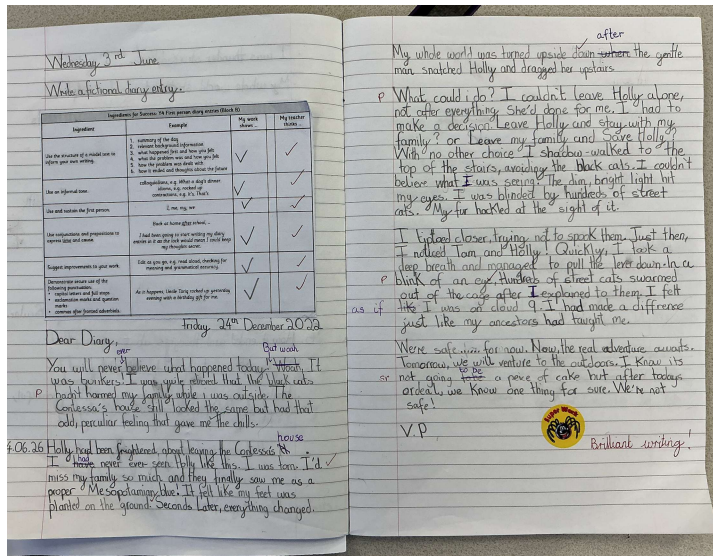 Wednesday 3rd June
Write a fictional diary entry.
Ingredients for Success: Y4 First person diary entries (Block B)
Ingredient
Example
My work shows ...
My teacher thinks ...
Use the structure of a model text to inform your own writing.
1. summary of the day
2. relevant background information
3. what happened first and how you felt
4. what the problem was and how you felt
5. how the problem was dealt with
6. how it ended and thoughts about the future
Use an informal tone.
colloquialisms, e.g. What a day!
idioms, e.g. rocked up
contractions, e.g. It's, That's
Use and sustain the first person.
I, me, my, we
Use conjunctions and prepositions to express time and cause
Back at home after school, ...
I had been going to start writing my diary entries in it as the lock would mean I could keep my thoughts secret.
Suggest improvements to your work.
Edit as you go, e.g. read aloud, checking for meaning and grammatical accuracy.
Demonstrate secure use of the following punctuation:
• capital letters and full stops
• exclamation marks and question marks
• commas after fronted adverbials.
As it happens, Uncle Tariq rocked up yesterday evening with a birthday gift for me.
Friday, 24th December 2022
Dear Diary,
ever
But woah
You will never believe what happened today. Woah, It
was bunkers! I was quite relieved that the black cats
P
hadn't harmed my family while i was outside. The
Contessa's house still looked the same but had that
odd, peculiar feeling that gave me the chills.
house
4.06.26 Holly had been frightened about leaving the Contessa's
had
I have never ever seen Holly like this. I was torn. I'd
miss my family so much and they finally saw me as a
proper Mesopotamian blue. It felt like my feet was
planted on the ground. Seconds Later, everything changed.
after
My whole world was turned upside down where the gentle
man snatched Holly and dragged her upstairs.
P What could i do? I couldn't leave Holly alone,
not after everything. She'd done for me. I had to
make a decision. Leave Holly and stay with my
family? or Leave my family and Save Holly?
With no other choice I shadow-walked to the
top of the stairs, avoiding the black cats. I couldn't
believe what I was seeing. The dim, bright light hit
my eyes. I was blinded by hundreds of street
cats. My fur hackled at the sight of it.
I tiptoed closer, trying not to spook them. Just then,
I noticed Tom and Holly! Quickly, I took a
deep breath and managed to pull the lever down. In a
P blink of an eye, Hundreds of street cats swarmed
out of the cage after I explained to them. I felt
as if like I was on cloud 9. I had made a difference
just like my ancestors had taught me.
We're safe...... for now. Now, the real adventure awaits.
Tomorrow, we will venture to the outdoors. I know its
to be
sp not going a peve of cake but after todays
ordeal, we know one thing for sure. We're not
safe!
V.P
Super Work
Brilliant writing!